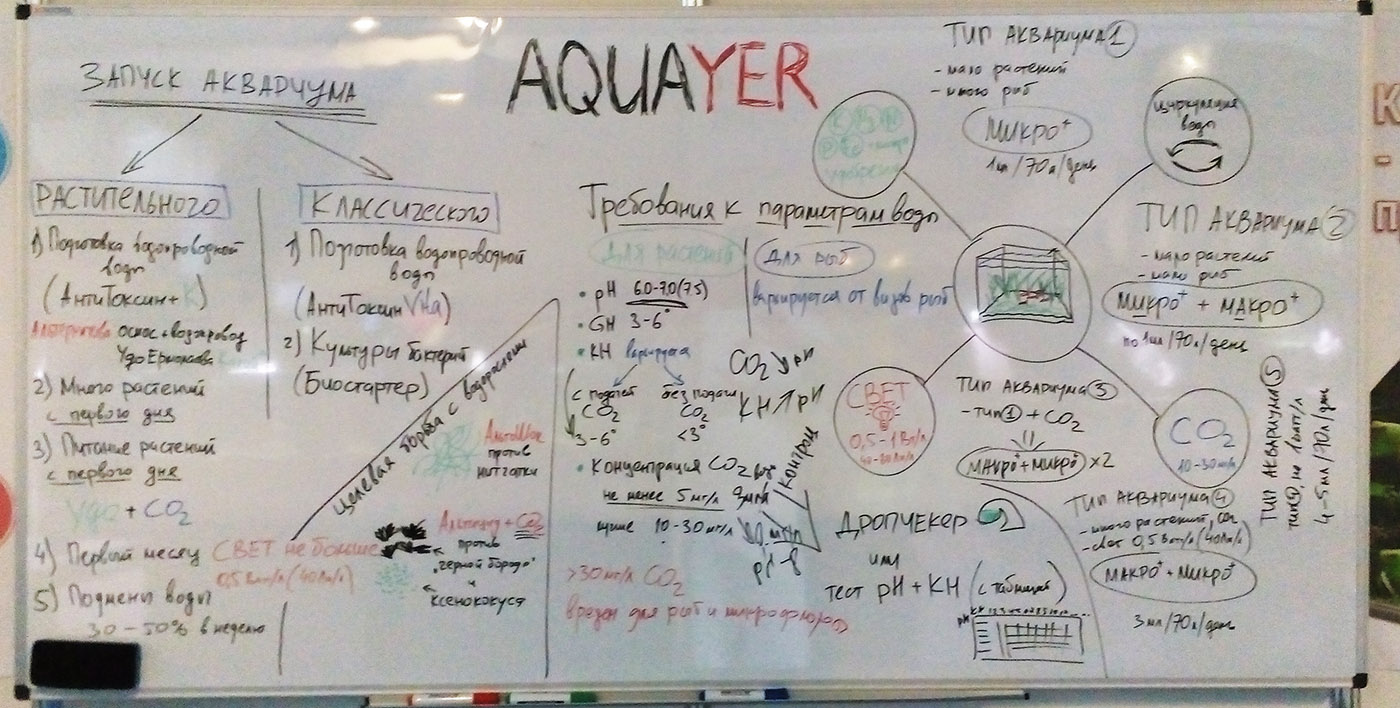 AQUAYER
ЗАПУСК АКВАРИУМА
РАСТИТЕЛЬНОГО
1) Подготовка водопроводной
воды
(АнтиТоксин+K)
Альтернатива Осмос + водопровод
Удо Ермолаева
2) Много растений
с первого дня
3) Питание растений
с первого дня
Удо + CO2
4) Первый месяц СВЕТ не больше
0,5 Вт/л (40Лм/л)
5) Подмены воды
30-50% в неделю
КЛАССИЧЕСКОГО
1) Подготовка водопроводной
воды
(АнтиТоксин Vita)
2) Культуры бактерий
(Биостартер)
Целевая борьба с водорослями
АльгоШок
против
нитчатки
Альгицид + CO2
против
"черной бороды"
Ксенококуса
Требования к параметрам воды
Для растений
pH 6.0-7.0 (7.5)
GH 3-6°
KH варьируется
с подачей
CO2
3-6°
без подачи
CO2
<3°
Концентрация CO2
не менее 5 мг/л
лучше 10-30 мг/л
>30 мг/л CO2
вреден для рыб и микрофлоры
Для рыб
варьируется от видов рыб
CO2
KH↑ pH
контрол
ДРОПЧЕКЕР
или
тест pH + KH (с таблицей)
KH
pH
K N
P Fe + микро
удобрения
Циркуляция
воды
СВЕТ
0,5-1 Вт/л
CO2
10-30 мг/л
ТИП АКВАРИУМА 1
- мало растений
- много рыб
МИКРО+
1мл/70л/день
ТИП АКВАРИУМА 2
- мало растений
- мало рыб
МИКРО+ + МАКРО+
по 1мл/70л/день
ТИП АКВАРИУМА 3
- тип 1 + CO2
МАКРО+ + МИКРО+ x2
ТИП АКВАРИУМА 4
- много растений, CO2
- свет 0,5 Вт/л (40Лм/л)
МАКРО+ + МИКРО+
3мл/70л/день
ТИП АКВАРИУМА 5
тип 4, но 1ватт/л
4-5мл/70л/день
К
-
П